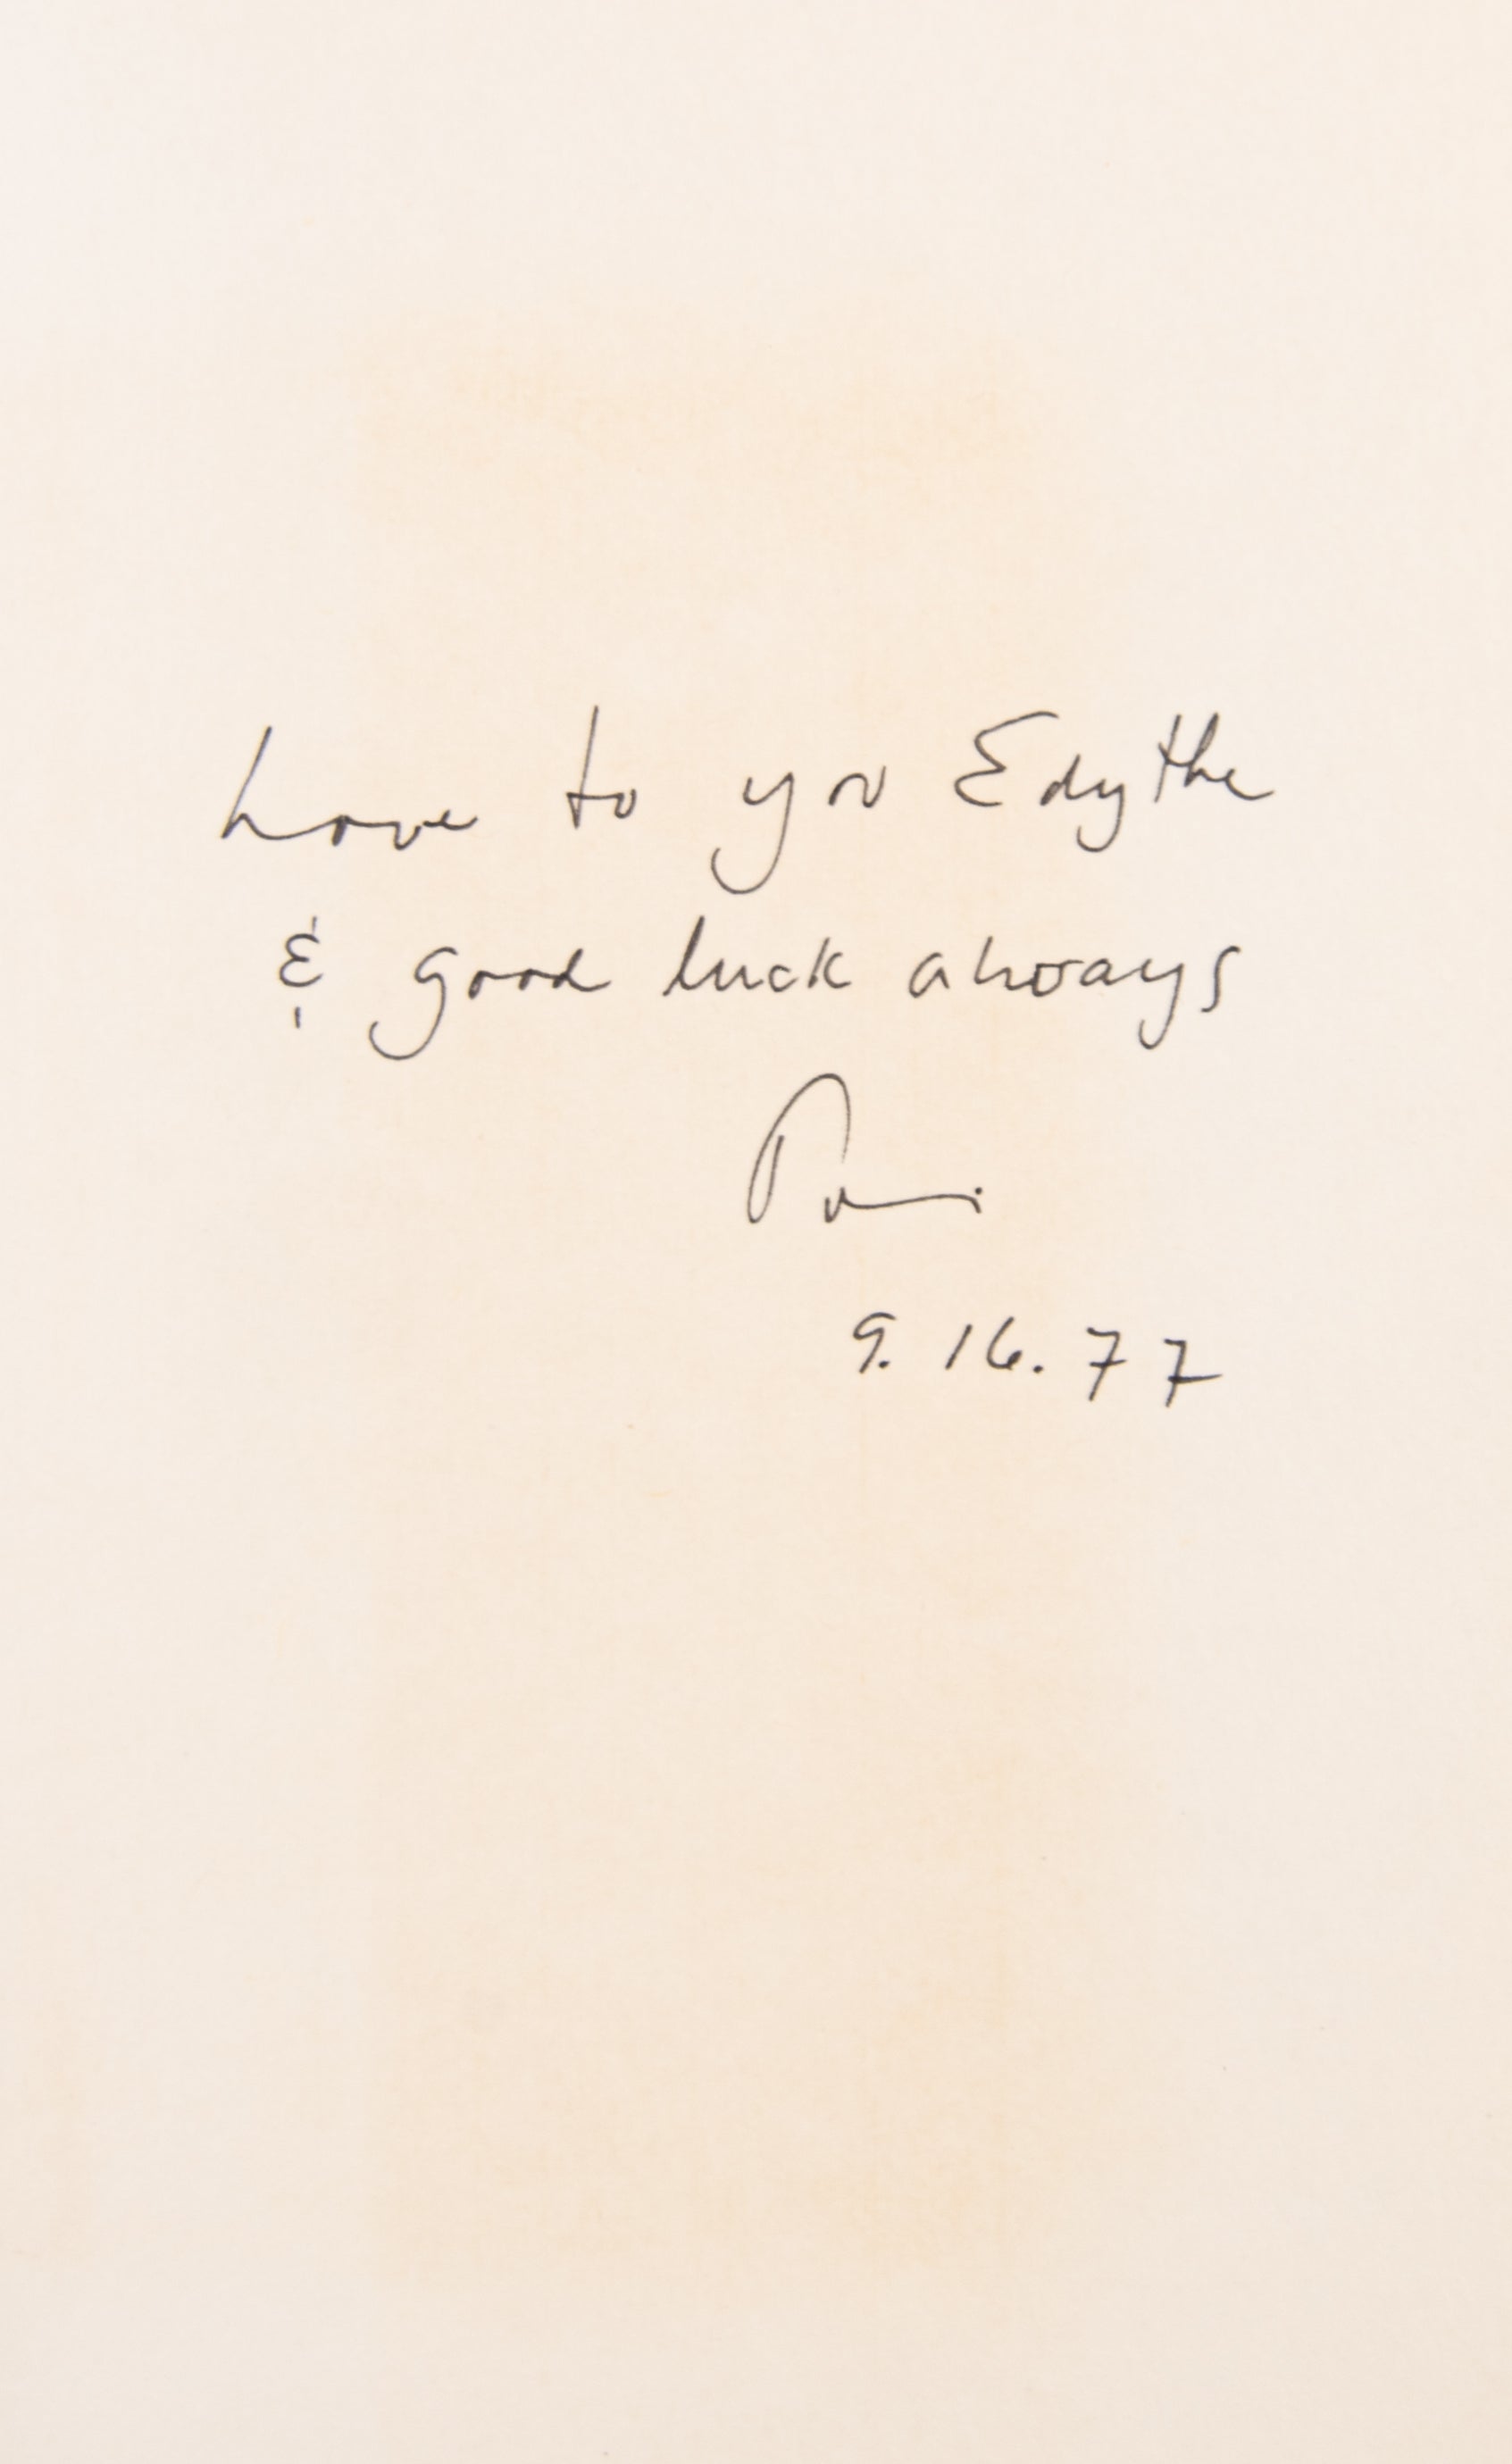 Love to you Edythe
& good luck always
9.16.77